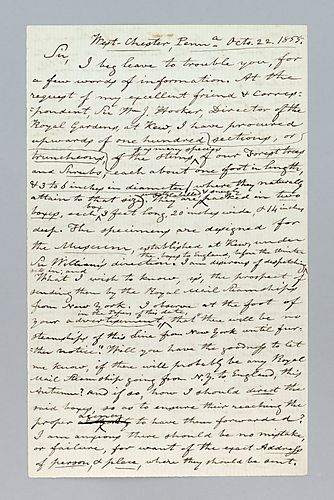 West-Chester, Penna. Octo. 22. 1855.
Sir,
I beg leave to trouble you, for
a few words of information. At the
request of my excellent friend & Corres-
-pondent, Sir W. J. Hooker, Director of the
Royal Gardens, at Kew, I have procured
upwards of one hundred sections, or
truncheons, of the stems of our Forest trees
and Shrubs, each about one foot in length,
& 3 to 6 inches in diameter, where they naturally
attain to that size. They are packed in two
boxes, each 3 feet long, 20 inches wide, & 14 inches
deep. The specimens are designed for
the Museum, established at Kew, under
Sir William's direction. I am desirous of dispatching
the boxes to England, before the Winter
sets in: and
What I wish to know, is, the prospect of
sending them by the Royal Mail Steamships
from New York. I observe at the foot of
in the papers of this date
your advertisement, that there will be no
steamships of this Line from New York until fur-
ther notice. Will you have the goodness to let
me know, if there will probably be any Royal
Mail Steamship going from N.Y. to England, this
Autumn? and if so, how I should direct the
said boxes, so as to ensure their reaching the
proper agency to have them forwarded?
I am anxious there should be no mistake,
or failure, for want of the exact Address
of person, & place, where they should be sent.